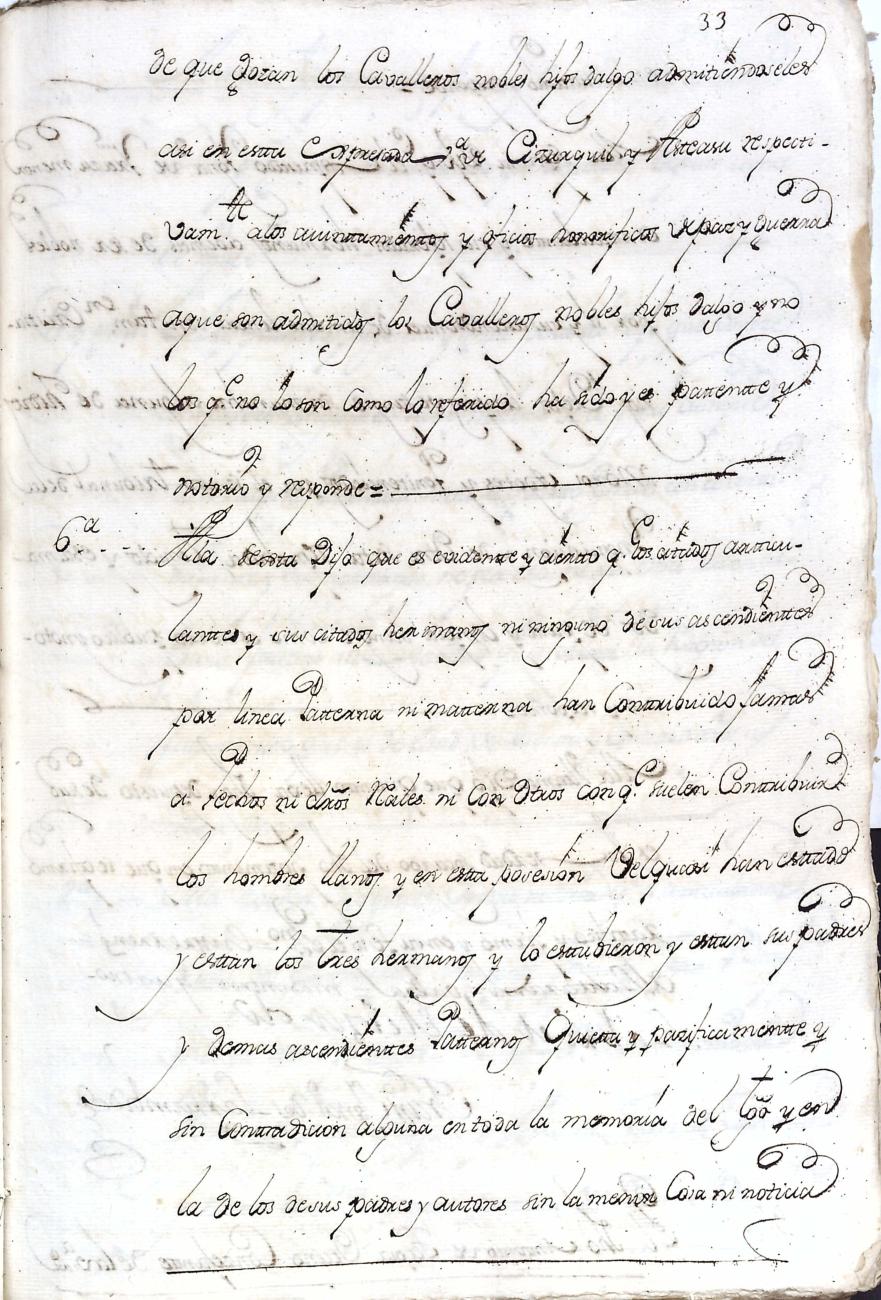 33
de que gozan los Cavalleros nobles hijos dalgo admitiendoseles
asi en estta expresada vª de Cizurquil y Asteasu respecti-
vam.tte alos aiunttamienttos y oficios honorificos de paz y guerra
aque son admitidos los Cavalleros nobles hijos dalgo y no
los q.e no lo son como lo referido ha sido y es pattentte y
notorio y responde=
6.a Ala sesta Dijo que es evidentte y ciertto q.e los cittados articu-
lanttes y sus cittados hermanos ni ninguno de sus ascendienttes
por linea Patterna ni matterna han Conttribuido Jamas
a Pechos ni dros Rales ni con Otros con q.e suelen Conttribuir
los hombres llanos y en estta posesion Velquasi han esttado
y esttan los tres hermanos y lo esttubieron y esttan sus padres
y demas ascendienttes Patternos Quietta y pazificamentte y
sin Conttradicion alguna en toda la memoria del tgõ y en
la de los de sus padres y autores sin la menor Cosa ni noticia